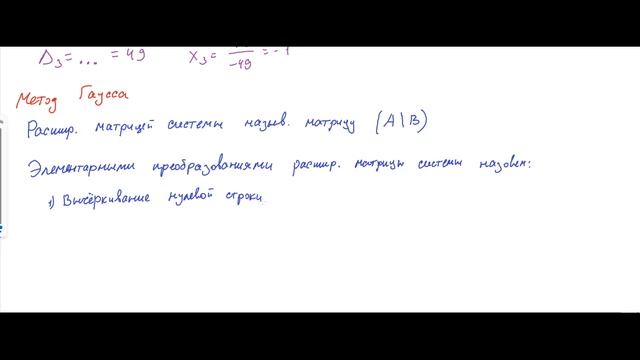 Δ₃ = ... = 49 X₃ = /-49 = -1
Метод Гаусса
Расшир. матрицей системы назыв. матрицу (A|B)
Элементарными преобразованиями расшир. матрицы системы назовем:
1) Вычёркивание нулевой строки